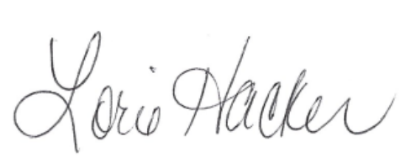 Lorie Hacker